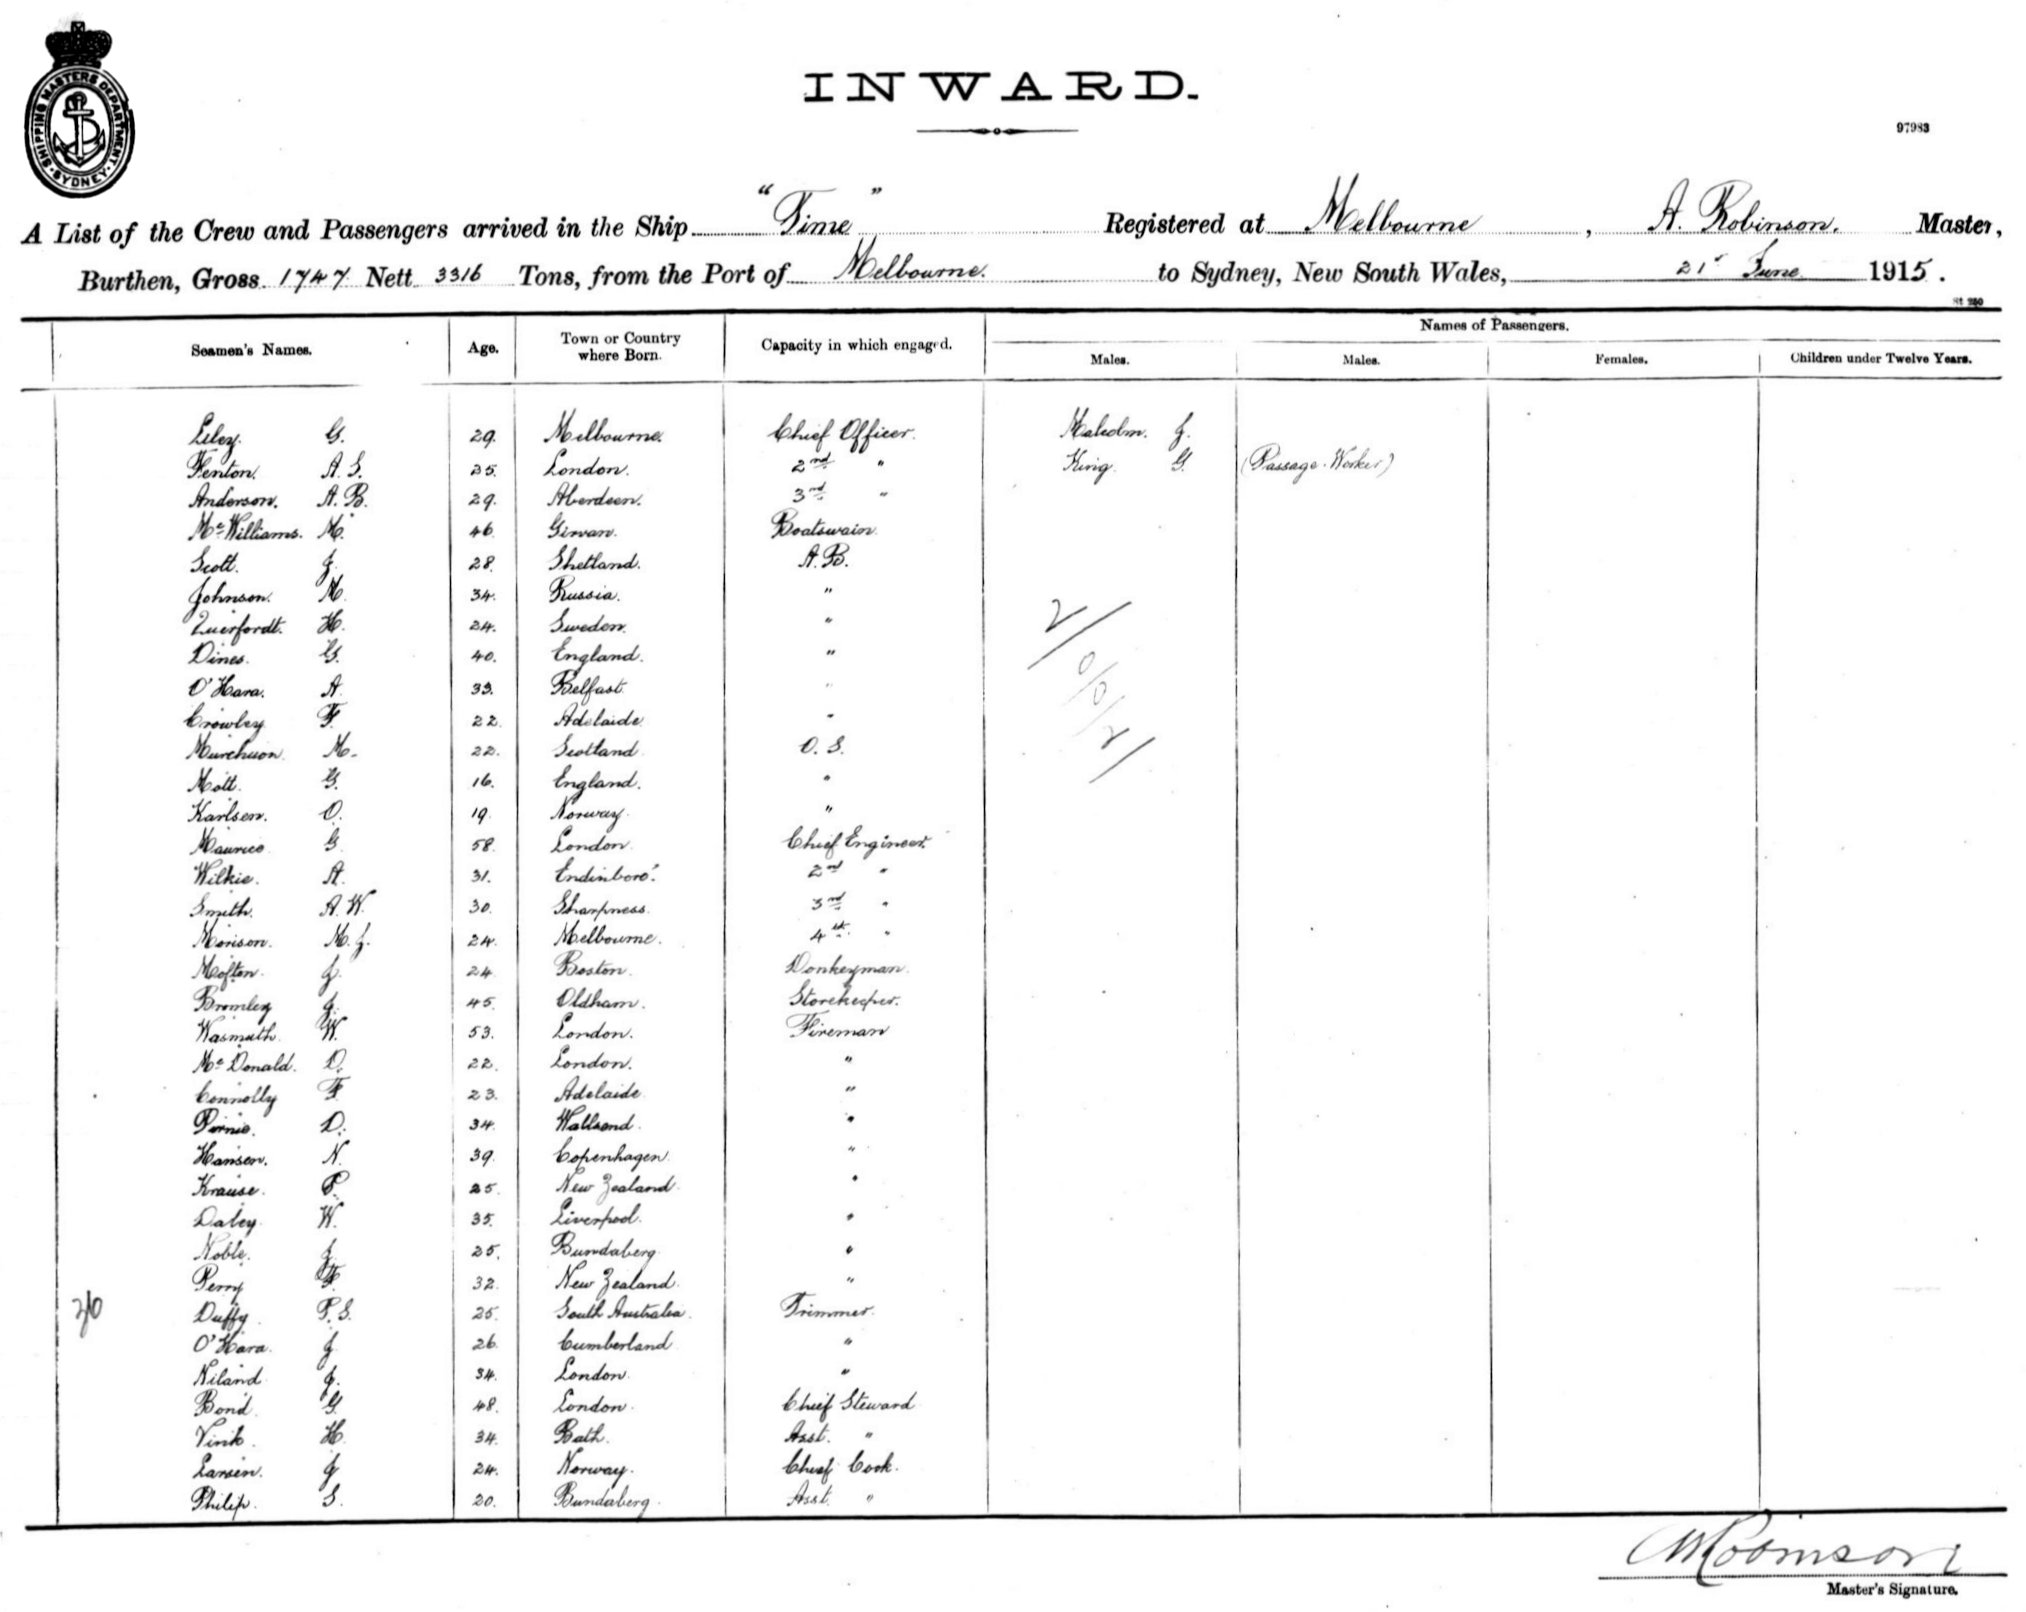 SHIPPING MASTERS DEPARTMENT. SYDNEY.
INWARD.
97983
A List of the Crew and Passengers arrived in the Ship "Time" Registered at Melbourne, A. Robinson. Master,
Burthen, Gross 1747 Nett 3316 Tons, from the Port of Melbourne. to Sydney, New South Wales, 21st June 1915.
St 250
Names of Passengers.
Seamen's Names. Age. Town or Country where Born. Capacity in which engaged. Males. Males. Females. Children under Twelve Years.
Liley. G. 29. Melbourne. Chief Officer. Malcolm. J.
Fenton. A. S. 25. London. 2nd " King. G. (Passage-Worker)
Anderson. A. B. 29. Aberdeen. 3rd "
McWilliams. M. 46. Girvan. Boatswain.
Scott. J. 28. Shetland. A. B.
Johnson. M. 34. Russia. "
Querfordt. H. 24. Sweden. "
Dines. G. 40. England. "
O'Hara. A. 33. Belfast. "
Crowley F. 22. Adelaide. "
Murchison. M. 22. Scotland. O. S.
Mott. G. 16. England. "
Karlsen. O. 19. Norway. "
Maurice. G. 58. London. Chief Engineer.
Wilkie. A. 31. Endinboro'. 2nd "
Smith. A. W. 30. Sharpness. 3rd "
Morison. M. J. 24. Melbourne. 4th. "
J. 24. Boston. Donkeyman.
Bromley J. 45. Oldham. Storekeeper.
Wasmuth. W. 53. London. Fireman
McDonald. D. 22. London. "
Connolly F. 23. Adelaide. "
Pirnie. D. 34. Wallsend. "
Hansen. N. 39. Copenhagen. "
Krause. P. 25. New Zealand. "
Daley. W. 35. Liverpool. "
Noble. J. 25. Bundaberg. "
Perry F. 32. New Zealand. "
36 Duffy. P. S. 25. South Australia. Trimmer.
O'Hara. J. 26. Cumberland "
Niland J. 34. London. "
Bond. G. 48. London. Chief Steward
H. 34. Bath. Asst. "
Larsen. J. 24. Norway. Chief Cook.
Philip. S. 20. Bundaberg. Asst. "
2/0/0/2/
A Robinson
Master's Signature.